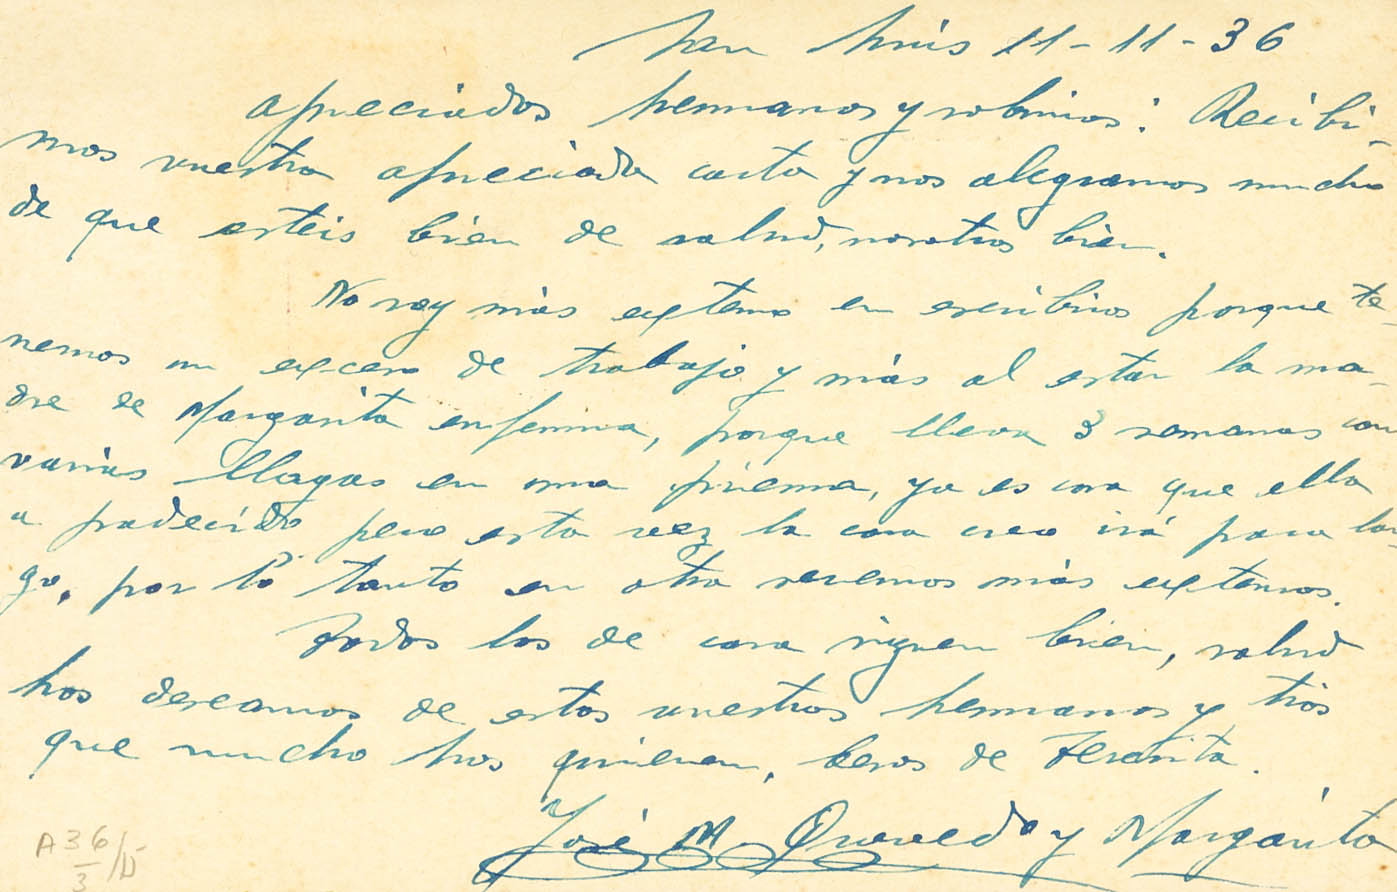 San Luis 11-11-36
apreciados hermanos y sobrinos: Recibi-
mos vuestra apreciada carta y nos alegramos mucho
de que esteis bien de salud, nosotros bien.
No soy más extenso en escribiros porque te-
nemos un exceso de trabajo y más al estar la ma-
dre de Margarita enferma, porque lleva 3 semanas con
varias llagas en una pierna, ya es cosa que ella
a padecido pero esta vez la cosa creo irá para lar-
go, por lo tanto en otra seremos más extensos.
Todos los de casa siguen bien, salud
hos deseamos de estos vuestros hermanos y tios
que mucho hos quieren, besos de Teresita.
José M. Quevedo y Margarita
A 36/
3